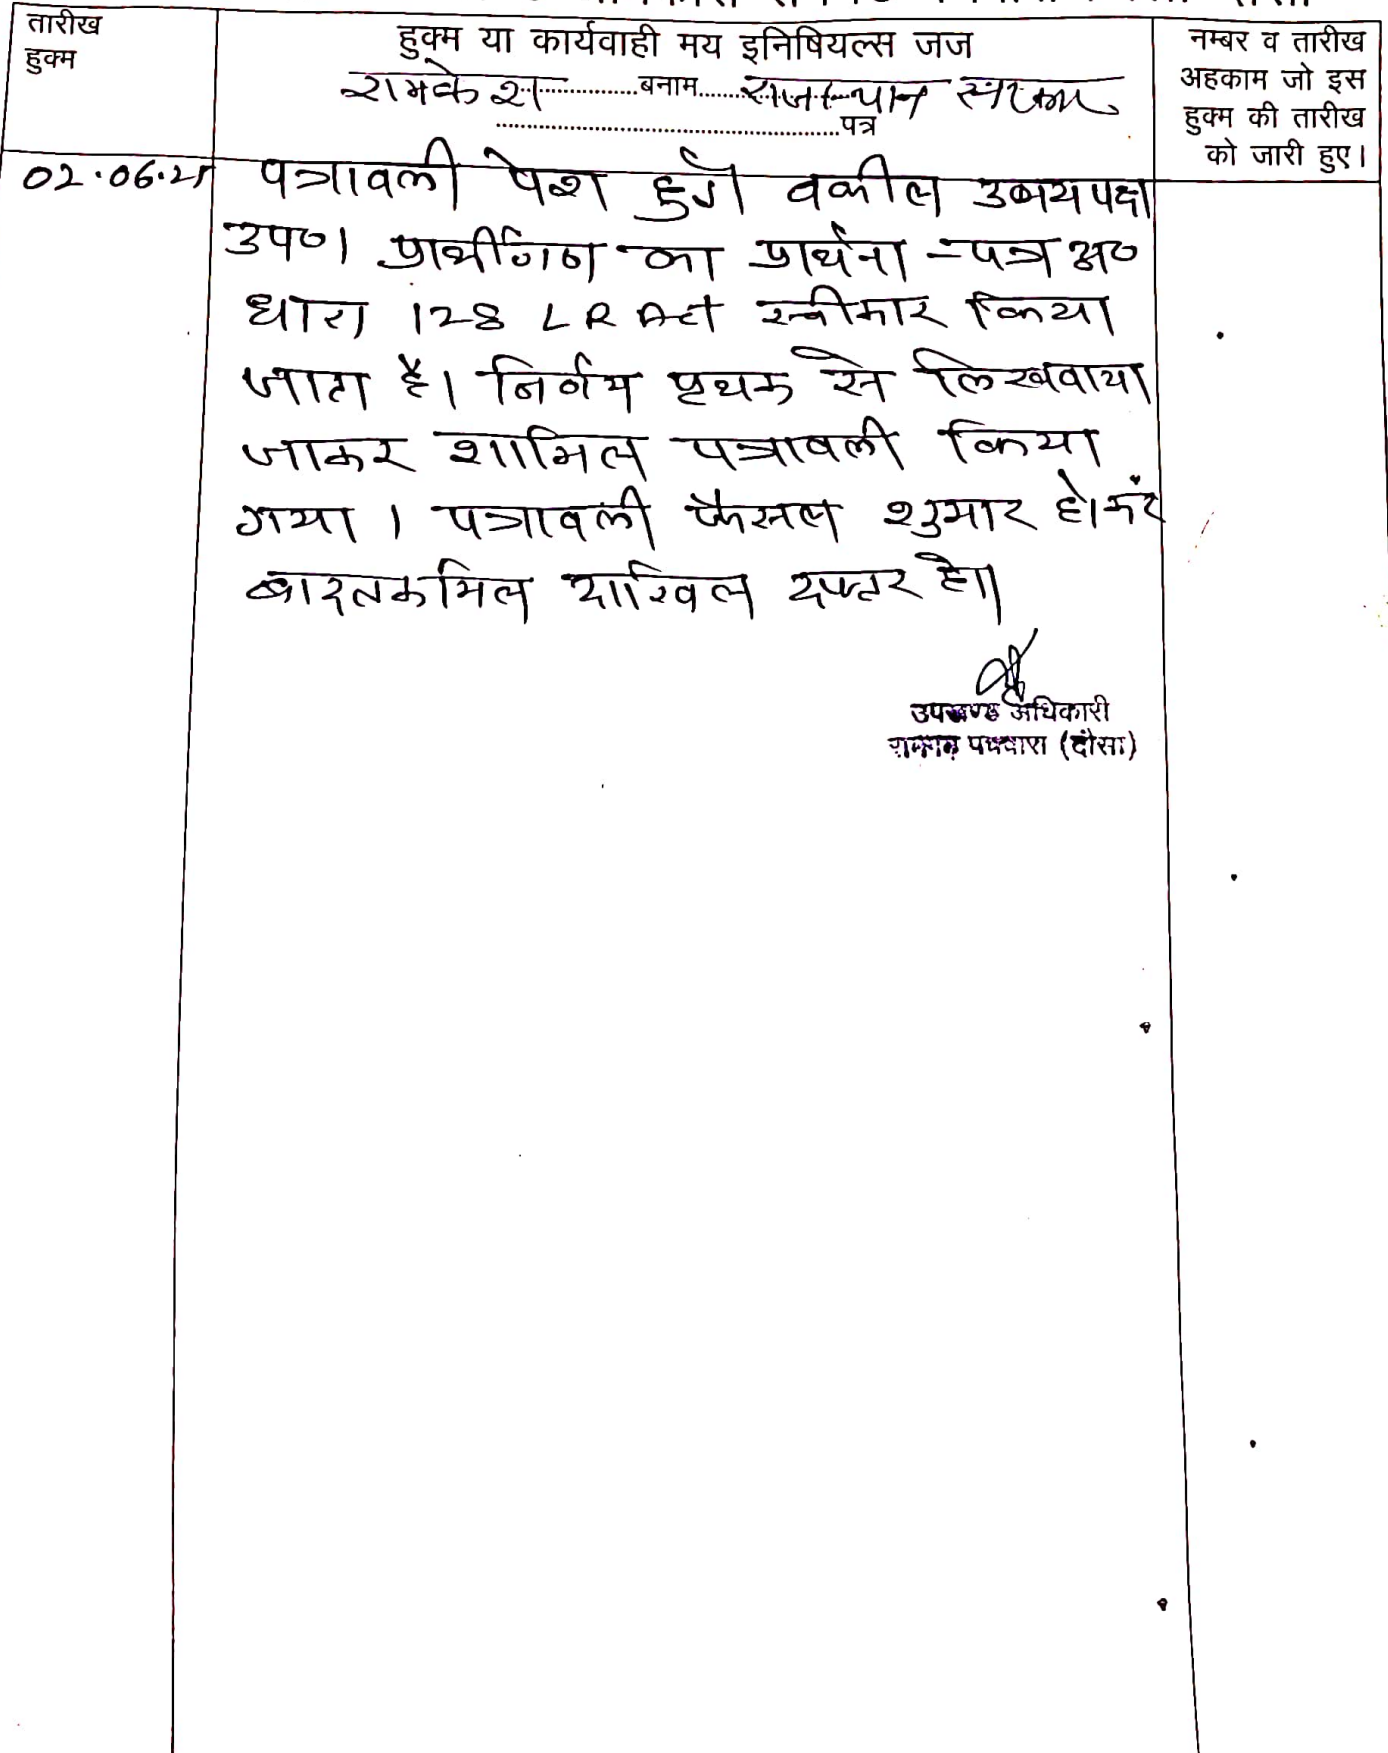 तारीख
हुक्म
हुक्म या कार्यवाही मय इनिषियल्स जज
रामकेश बनाम राजस्थान सरकार
पत्र
नम्बर व तारीख
अहकाम जो इस
हुक्म की तारीख
को जारी हुए।
02.06.25 पत्रावली पेश हुई। वकील उभयपक्ष
उप०। प्रार्थीगण का प्रार्थना-पत्र अ०
धारा 128 LR Act स्वीकार किया
जाता है। निर्णय पृथक से लिखवाया
जाकर शामिल पत्रावली किया
गया। पत्रावली फैसल शुमार होकर
बादतकमिल दाखिल दफ्तर हो।
उपखण्ड अधिकारी
पचवारा (दौसा)